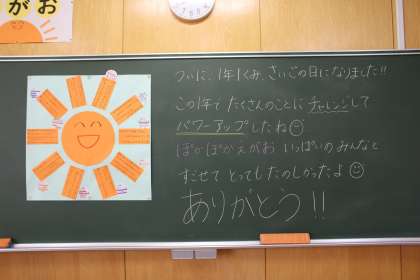 がお
ついに、1年1くみ、さいごの日になりました!!
この1年で たくさんのことに チャレンジして
パワーアップしたね
ぽかぽかえがお いっぱいの みんなと
すごせて とってもたのしかったよ
ありがとう!!